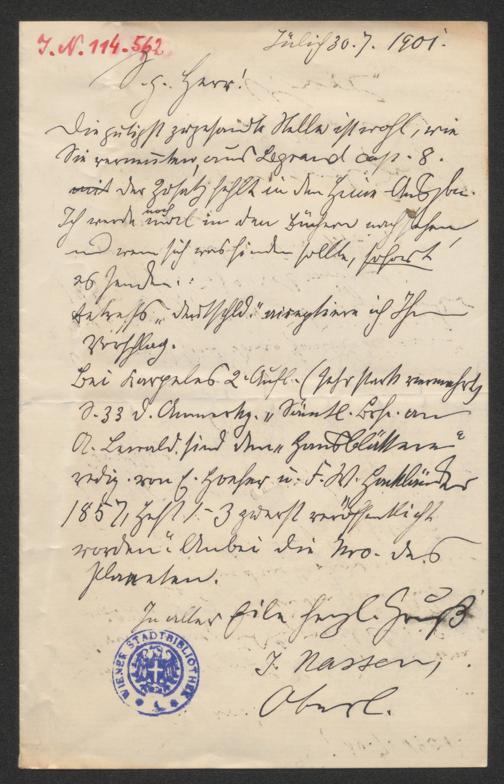 J. N. 114.562
Jülich 30. 7. 1901.
S. g. Herr!
Die gütigst zugesandte Stelle ist wohl, wie
Sie vermuten, aus Legrand cap. 8.
mit der Zusatz fehlt in den Heine-Ausgbn.
Ich werde noch mal in den Büchern nachsehen
und wenn sich was finden sollte, sofort
es senden.
Betreffs "Deutschld." acceptiere ich Ihren
Vorschlag.
Bei Karpeles 2. Aufl. (sehr stark vermehrt)
S. 33 d. Anmerkg. "Sämtl. Brfe. an
A. Lewald sind den "Hausblättern"
redig. von E. Hoefer u. F. W. Hackländer
1857, Heft 1-3 zuerst veröffentlicht
worden." Anbei die Nro. des
Planeten.
In aller Eile herzl. Gruß
J. Nassen,
Oberl.
WIENER STADTBIBLIOTHEK